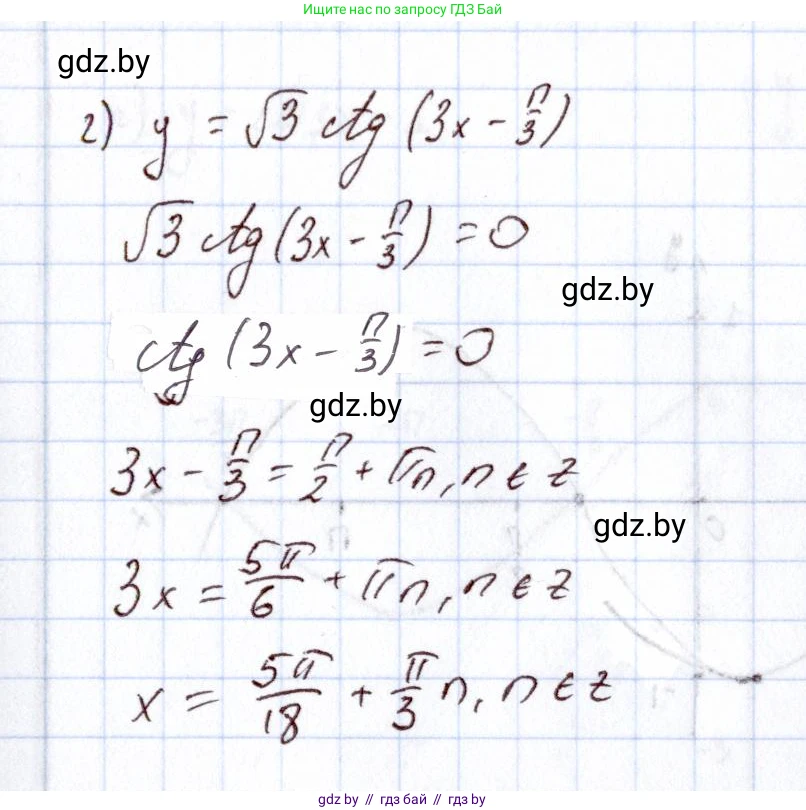 Ищите нас по запросу ГДЗ Бай
gdz.by
г) y = √3 ctg (3x − π/3)
√3 ctg (3x − π/3) = 0
gdz.by
ctg (3x − π/3) = 0
gdz.by
3x − π/3 = π/2 + πn, n ∈ z
gdz.by
3x = 5π/6 + πn, n ∈ z
x = 5π/18 + π/3 n, n ∈ z
gdz.by // гдз бай // gdz.by